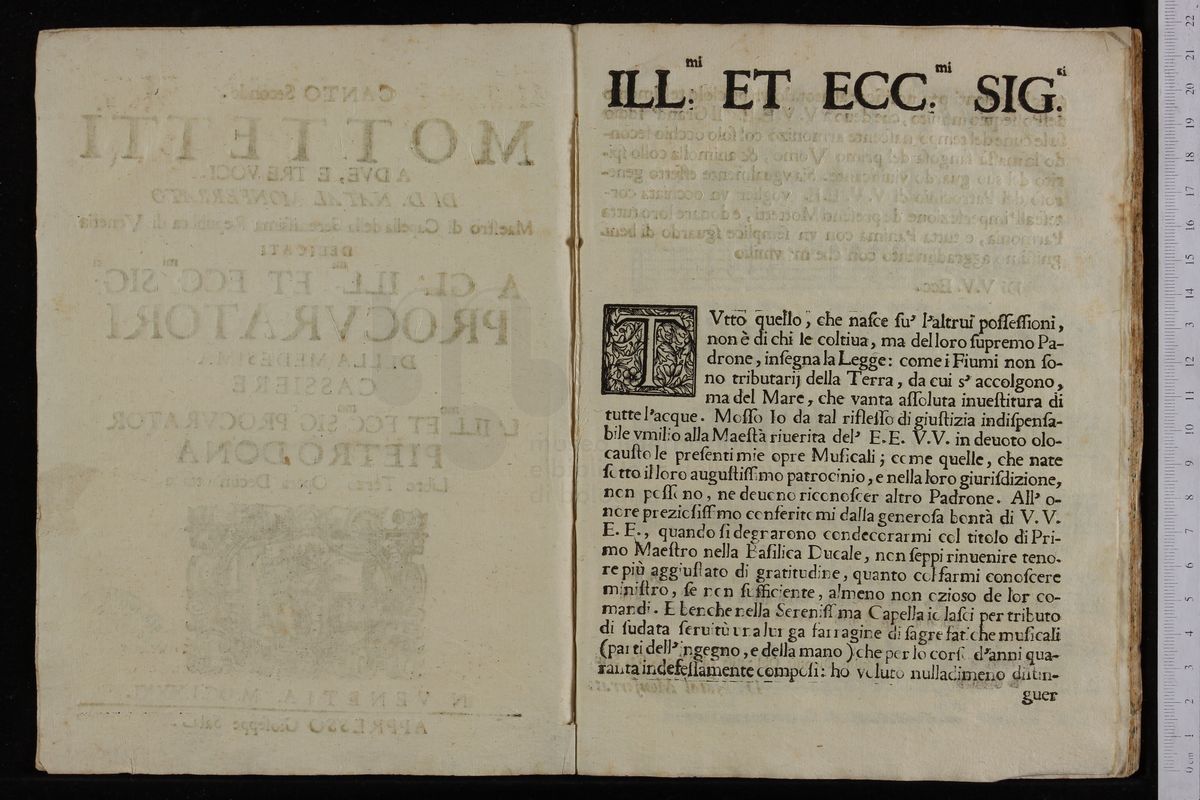 ILL.mi ET ECC.mi SIG.ri
TVtto quello, che naſce ſu' l'altrui poſſeſſioni,
non è di chi le coltiua, ma del loro ſupremo Pa-
drone, inſegna la Legge: come i Fiumi non ſo-
no tributarij della Terra, da cui s' accolgono,
ma del Mare, che vanta aſſoluta inueſtitura di
tutte l'acque. Moſſo Io da tal rifleſſo di giuſtizia indiſpenſa-
bile vmilio alla Maeſtà riuerita del' E.E. V.V. in deuoto olo-
cauſto le preſenti mie opre Muſicali; come quelle, che nate
ſotto il loro auguſtiſſimo patrocinio, e nella loro giuriſdizione,
non poſſono, ne deueno riconoſcer altro Padrone. All' o-
nore prezioſiſſimo conferitomi dalla generoſa bontà di V.V.
E.E., quando ſi degrarono condecorarmi col titolo di Pri-
mo Maeſtro nella Baſilica Ducale, non ſeppi rinuenire teno-
re più aggiuſtato di gratitudine, quanto col farmi conoſcere
miniſtro, ſe non ſufficiente, almeno non ozioso de lor co-
mandi. E benche nella Sereniſſima Capella io laſci per tributo
di ſudata ſeruitù vna lunga farragine di ſagre fatiche muſicali
(parti dell' ingegno, e della mano) che per lo corſo d'anni qua-
ranta indefeſſamente compoſi: ho voluto nulladimeno diſtin-
guer
CANTO Secondo.
MOTTETTI
A DVE, E TRE VOCI.
DI D. NATAL MONFERRATO
Maeſtro di Capella della Sereniſſima Republica di Venetia
DEDICATI
A GL' ILL.mi ET ECC.mi SIG.ri
PROCVRATORI
DELLA MEDESIMA
CASSIERE
L'ILL.mo ET ECC.mo SIG. PROCVRATOR
PIETRO DONA